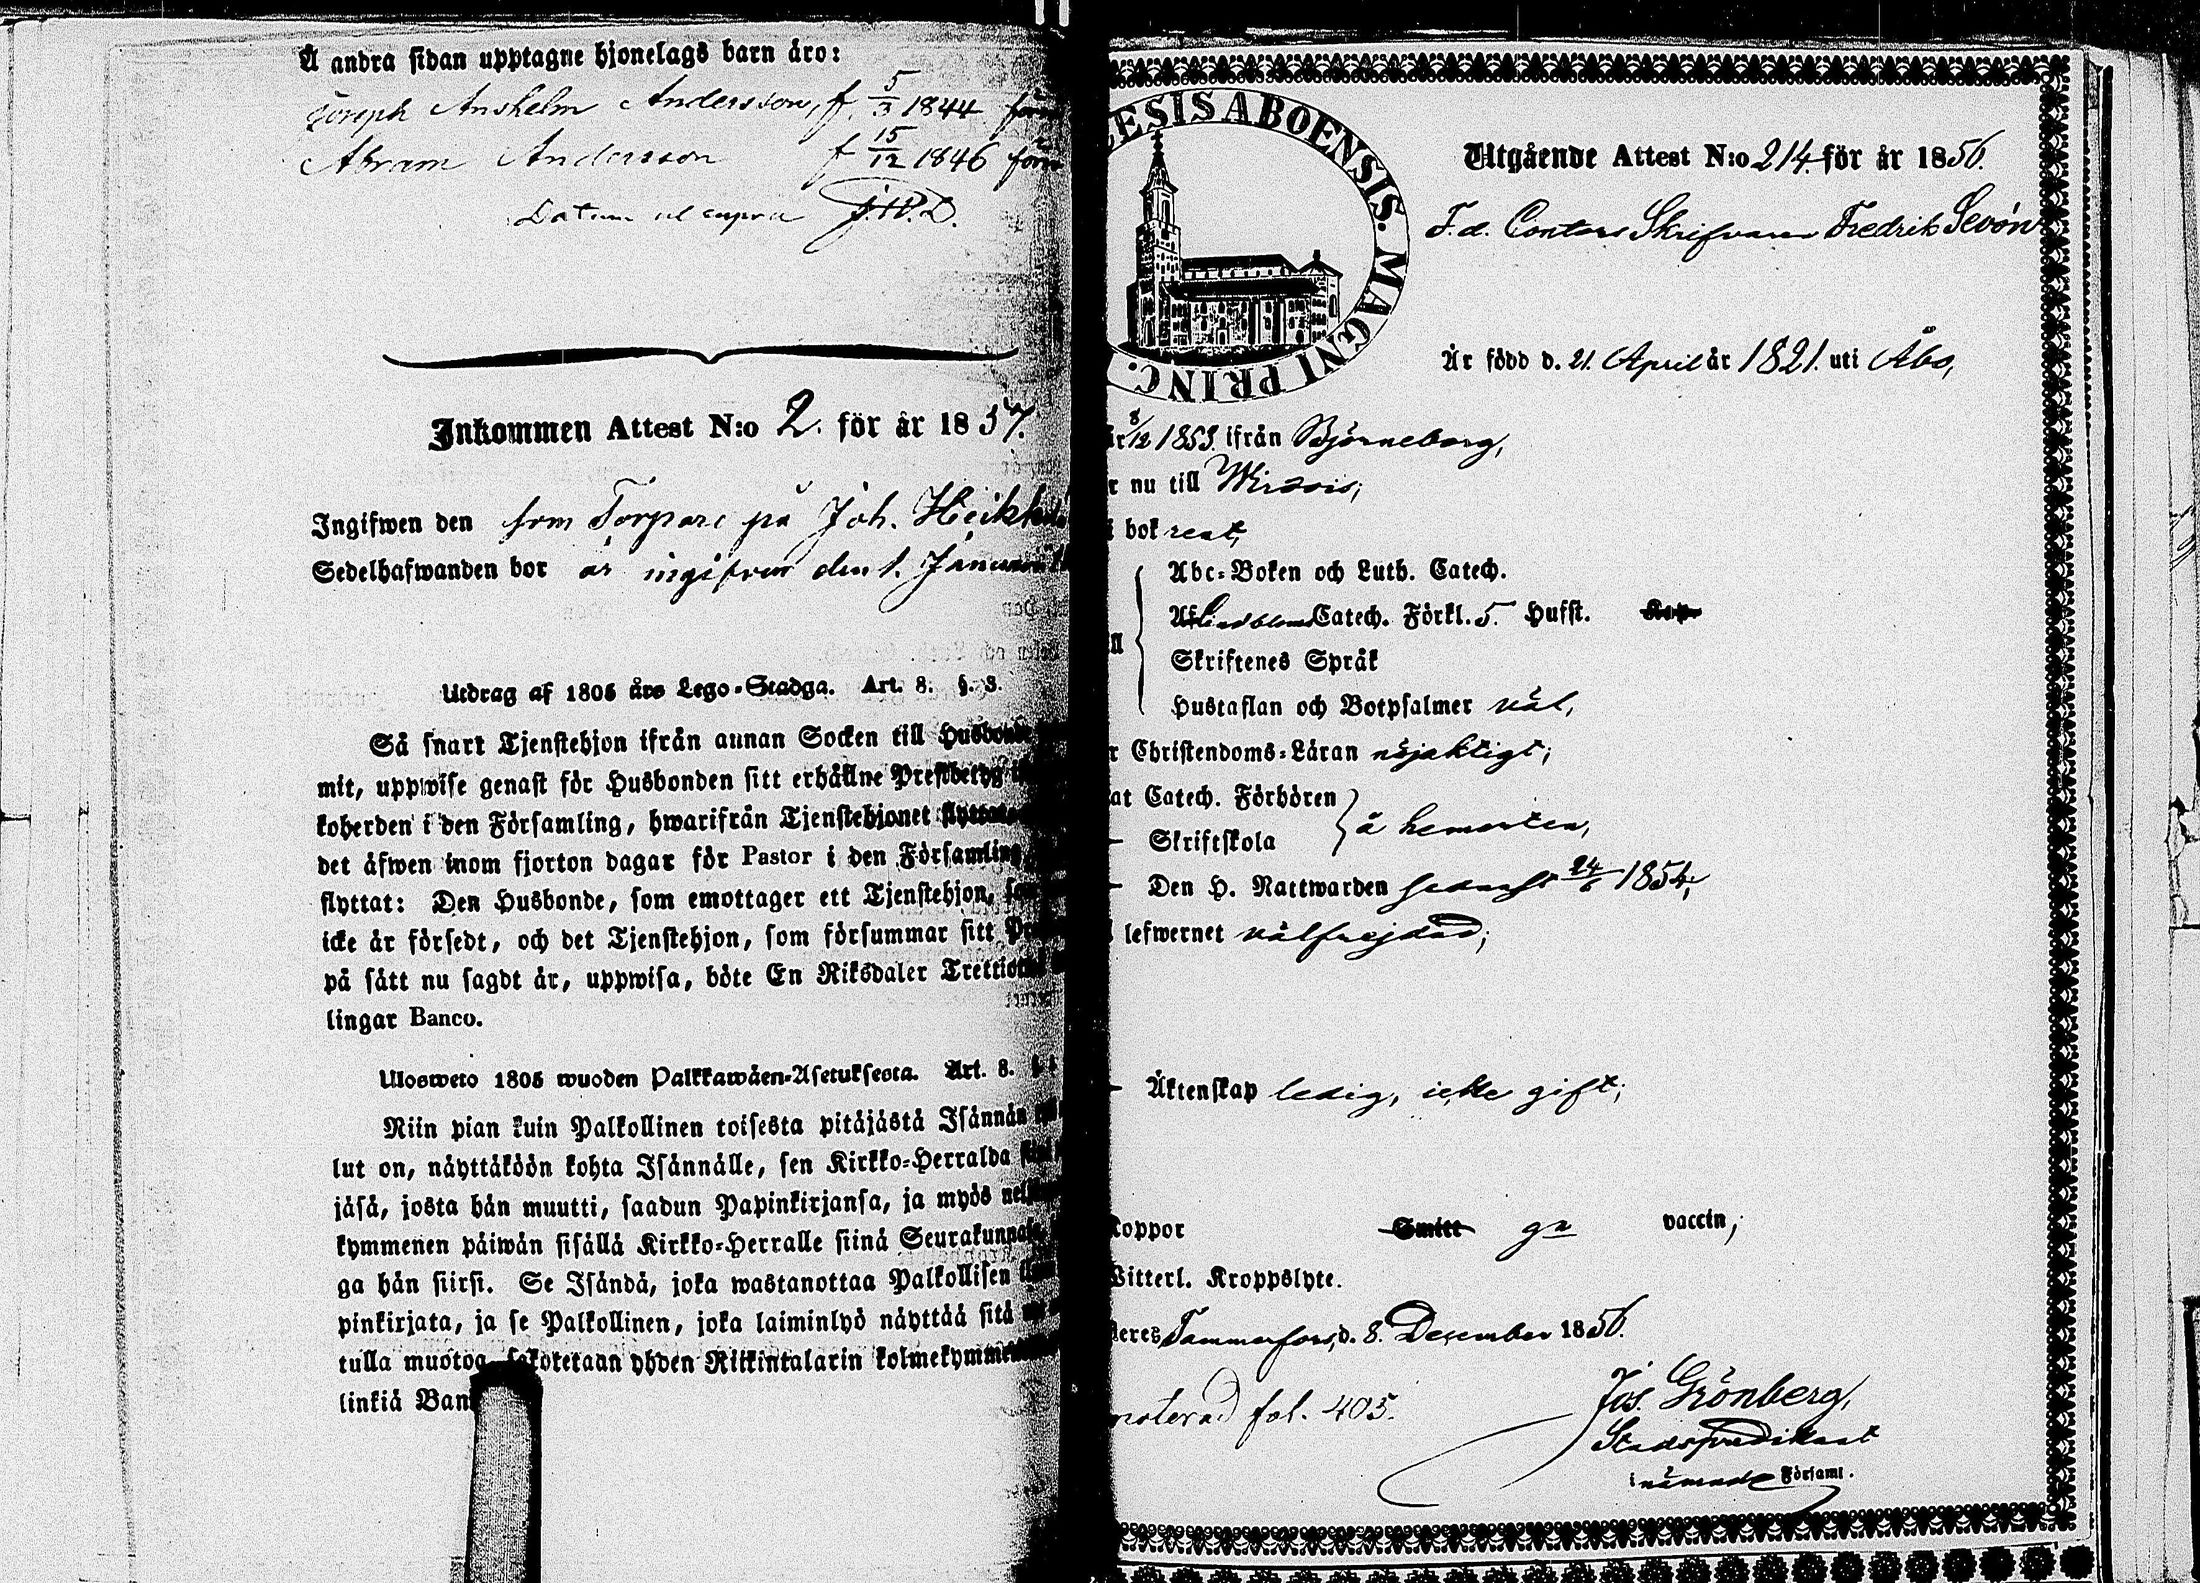 Å andra sidan upptagne hjonelags barn äro:
Joseph Anshelm Andersson, f. 5/3 1844
Abram Andersson f 15/12 1846
Datum ut supra
Inkommen Attest N:o 2. för år 1857.
Ingifwen den som Torpare på Joh.
Sedelhafwanden bor är ingifven den 1.
Utdrag af 1805 års Lego-Stadga. Art. 8. §. 3.
Så snart Tjenstehjon ifrån annan Socken till
mit, uppwise genast för Husbonden sitt erhållne Prestbetyg
koherden i den Församling, hwarifrån Tjenstehjonet
det äfwen inom fjorton dagar för Pastor i den Församling
flyttat: Den Husbonde, som emottager ett Tjenstehjon,
icke är försedt, och det Tjenstehjon, som försummar sitt
på sätt nu sagdt är, uppwisa, böte En Riksdaler
lingar Banco.
Ulosweto 1805 wuoden Palkkawäen-Asetuksesta. Art. 8.
Niin pian kuin Palkollinen toisesta pitäjästä Isännän
lut on, näyttäköön kohta Isännälle, sen Kirkko-Herralda
jäsä, josta hän muutti, saadun Papinkirjansa, ja myös
kymmenen päiwän sisällä Kirkko-Herralle siinä
ga hän siirsi. Se Isändä, joka wastanottaa Palkollisen
pinkirjata, ja se Palkollinen, joka laiminlyö näyttää sitä
tulla muotoa, sakotetaan yhden Riikintalarin
linkiä Ban
ESIS ABOENSIS. MAGNI PRINC.
Utgående Attest N:o 214. för år 1856.
F.d. Contors Skrifvaren Fredrik Sevón
Är född d. 21. April år 1821. uti Åbo,
8/12 1853. ifrån Björneborg,
nu till Wirdois;
i bok rent,
Abc-Boken och Luth. Catech.
Af Lindbloms Catech. Förkl. 5. Hufst.
Skriftenes Språk
Hustaflan och Botpsalmer väl,
Christendoms-Läran nöjaktigt;
at Catech. Förhören
Skriftskola } å hemorten,
Den H. Nattwarden senast 24/6 1854;
lefwernet välfrejdad;
Äktenskap ledig, icke gift;
Koppor Smitt gn vaccin,
Witterl. Kroppslyte.
Tammerfors, d. 8. December 1856.
noterad fol. 405.
Jos. Grönberg,
Stadspredikant
i nämnde Församl.